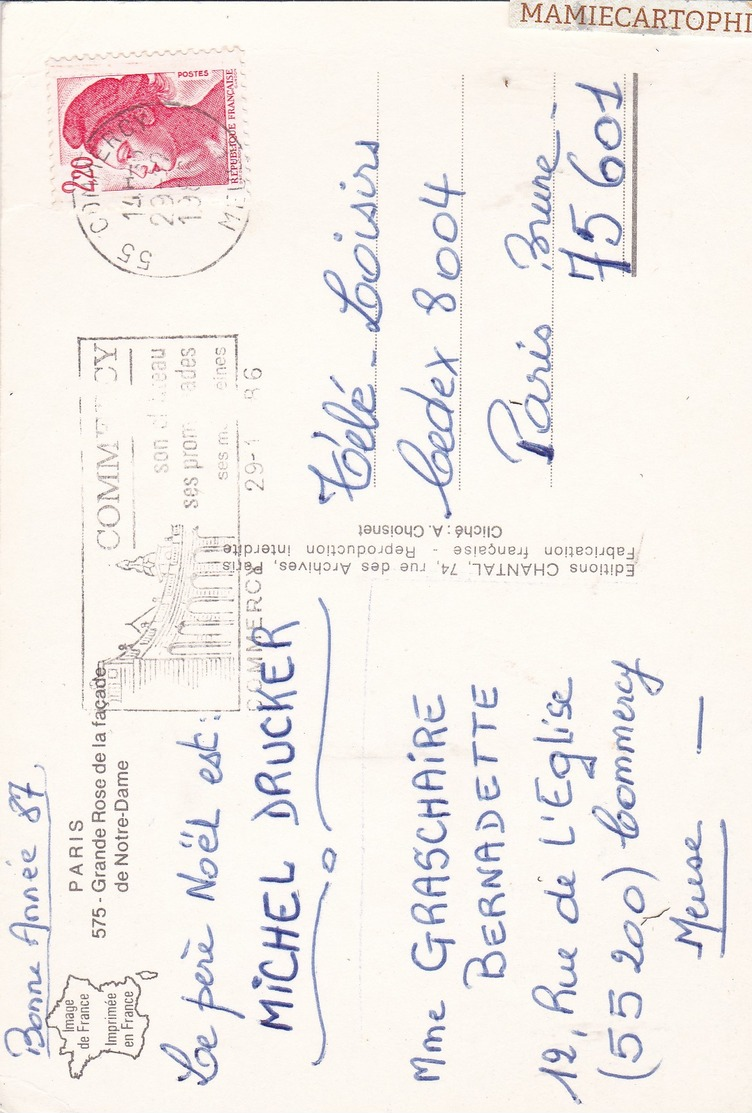 MAMIECARTOPHI
Bonne Année 87
PARIS
575 - Grande Rose de la façade
de Notre-Dame
Image
de France
Imprimée
en France
Le père Noël est :
MICHEL DRUCKER
Mme GRASCHAIRE
BERNADETTE
12, Rue de L'Eglise
(55200) Commercy
Meuse
Editions CHANTAL, 74, rue des Archives, Paris
Fabrication française - Reproduction interdite
Cliché : A. Choisnet
COMMERCY
son château
ses promenades
ses
COMMERCY
29-1 86
POSTES
RÉPUBLIQUE FRANÇAISE
2,20
55 COMMERCY
14H
29
Télé-Loisirs
Cedex 8004
Paris Brune -
75601